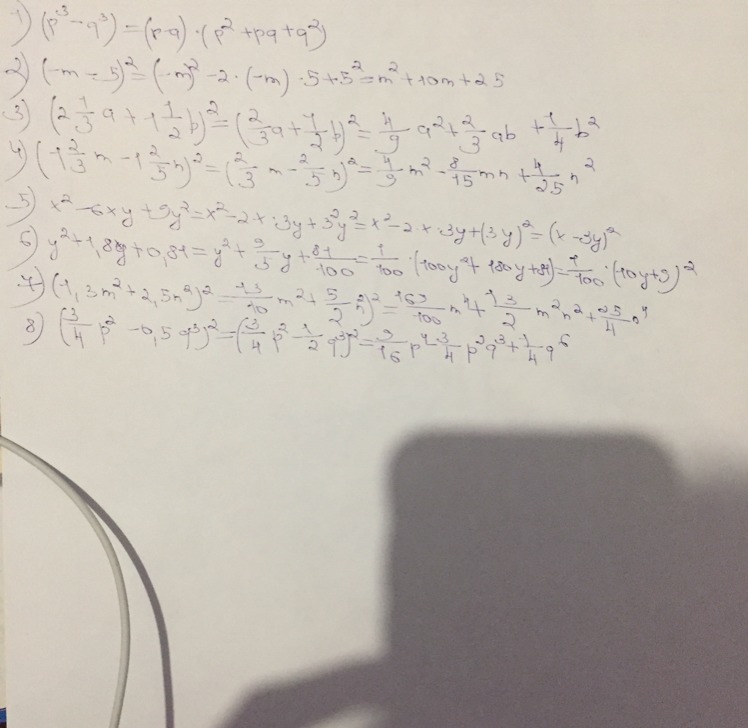 1) (p³-q³)=(p-q)·(p²+pq+q²)
2) (-m-5)²=(-m)²-2·(-m)·5+5²=m²+10m+25
3) (2 1/3 a + 1 1/2 b)²=(2/3 a+1/2 b)²=4/9 a²+2/3 ab+1/4 b²
4) (1 2/3 m-1 2/5 n)²=(2/3 m-2/5 n)²=4/9 m²-8/15 mn+4/25 n²
5) x²-6xy+9y²=x²-2x·3y+3²y²=x²-2x·3y+(3y)²=(x-3y)²
6) y²+1,8y+0,81=y²+9/5 y+81/100=1/100·(100y²+180y+81)=1/100·(10y+9)²
7) (1,3m²+2,5n²)²=(13/10 m²+5/2 n²)²=169/100 m⁴+13/2 m²n²+25/4 n⁴
8) (3/4 p²-0,5q³)²=(3/4 p²-1/2 q³)²=9/16 p⁴-3/4 p²q³+1/4 q⁶